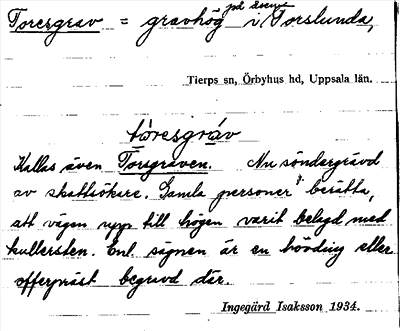 Toresgrav = gravhög på åsen i Torslunda,
Tierps sn, Örbyhus hd, Uppsala län.
tòresgràv
Kallas även Torsgraven. Nu söndergrävd
av skattsökare. Gamla personer berätta,
att vägen upp till högen varit belagd med
kullersten. Enl. sägnen är en hövding eller
offerpräst begravd där.
Ingegärd Isaksson 1934.